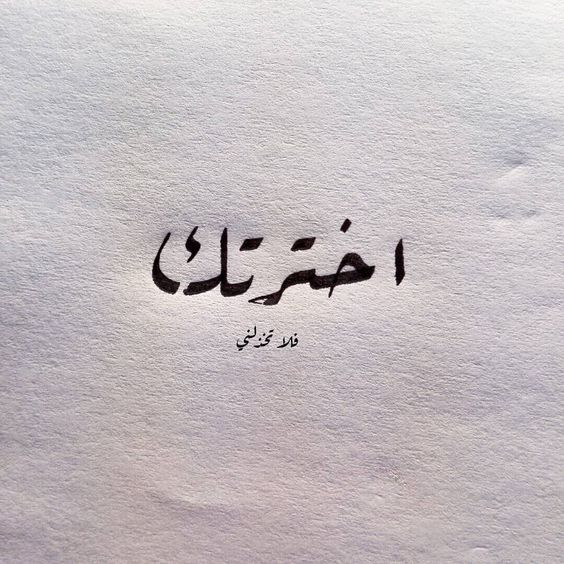 اخترتك
فلا تخذلني